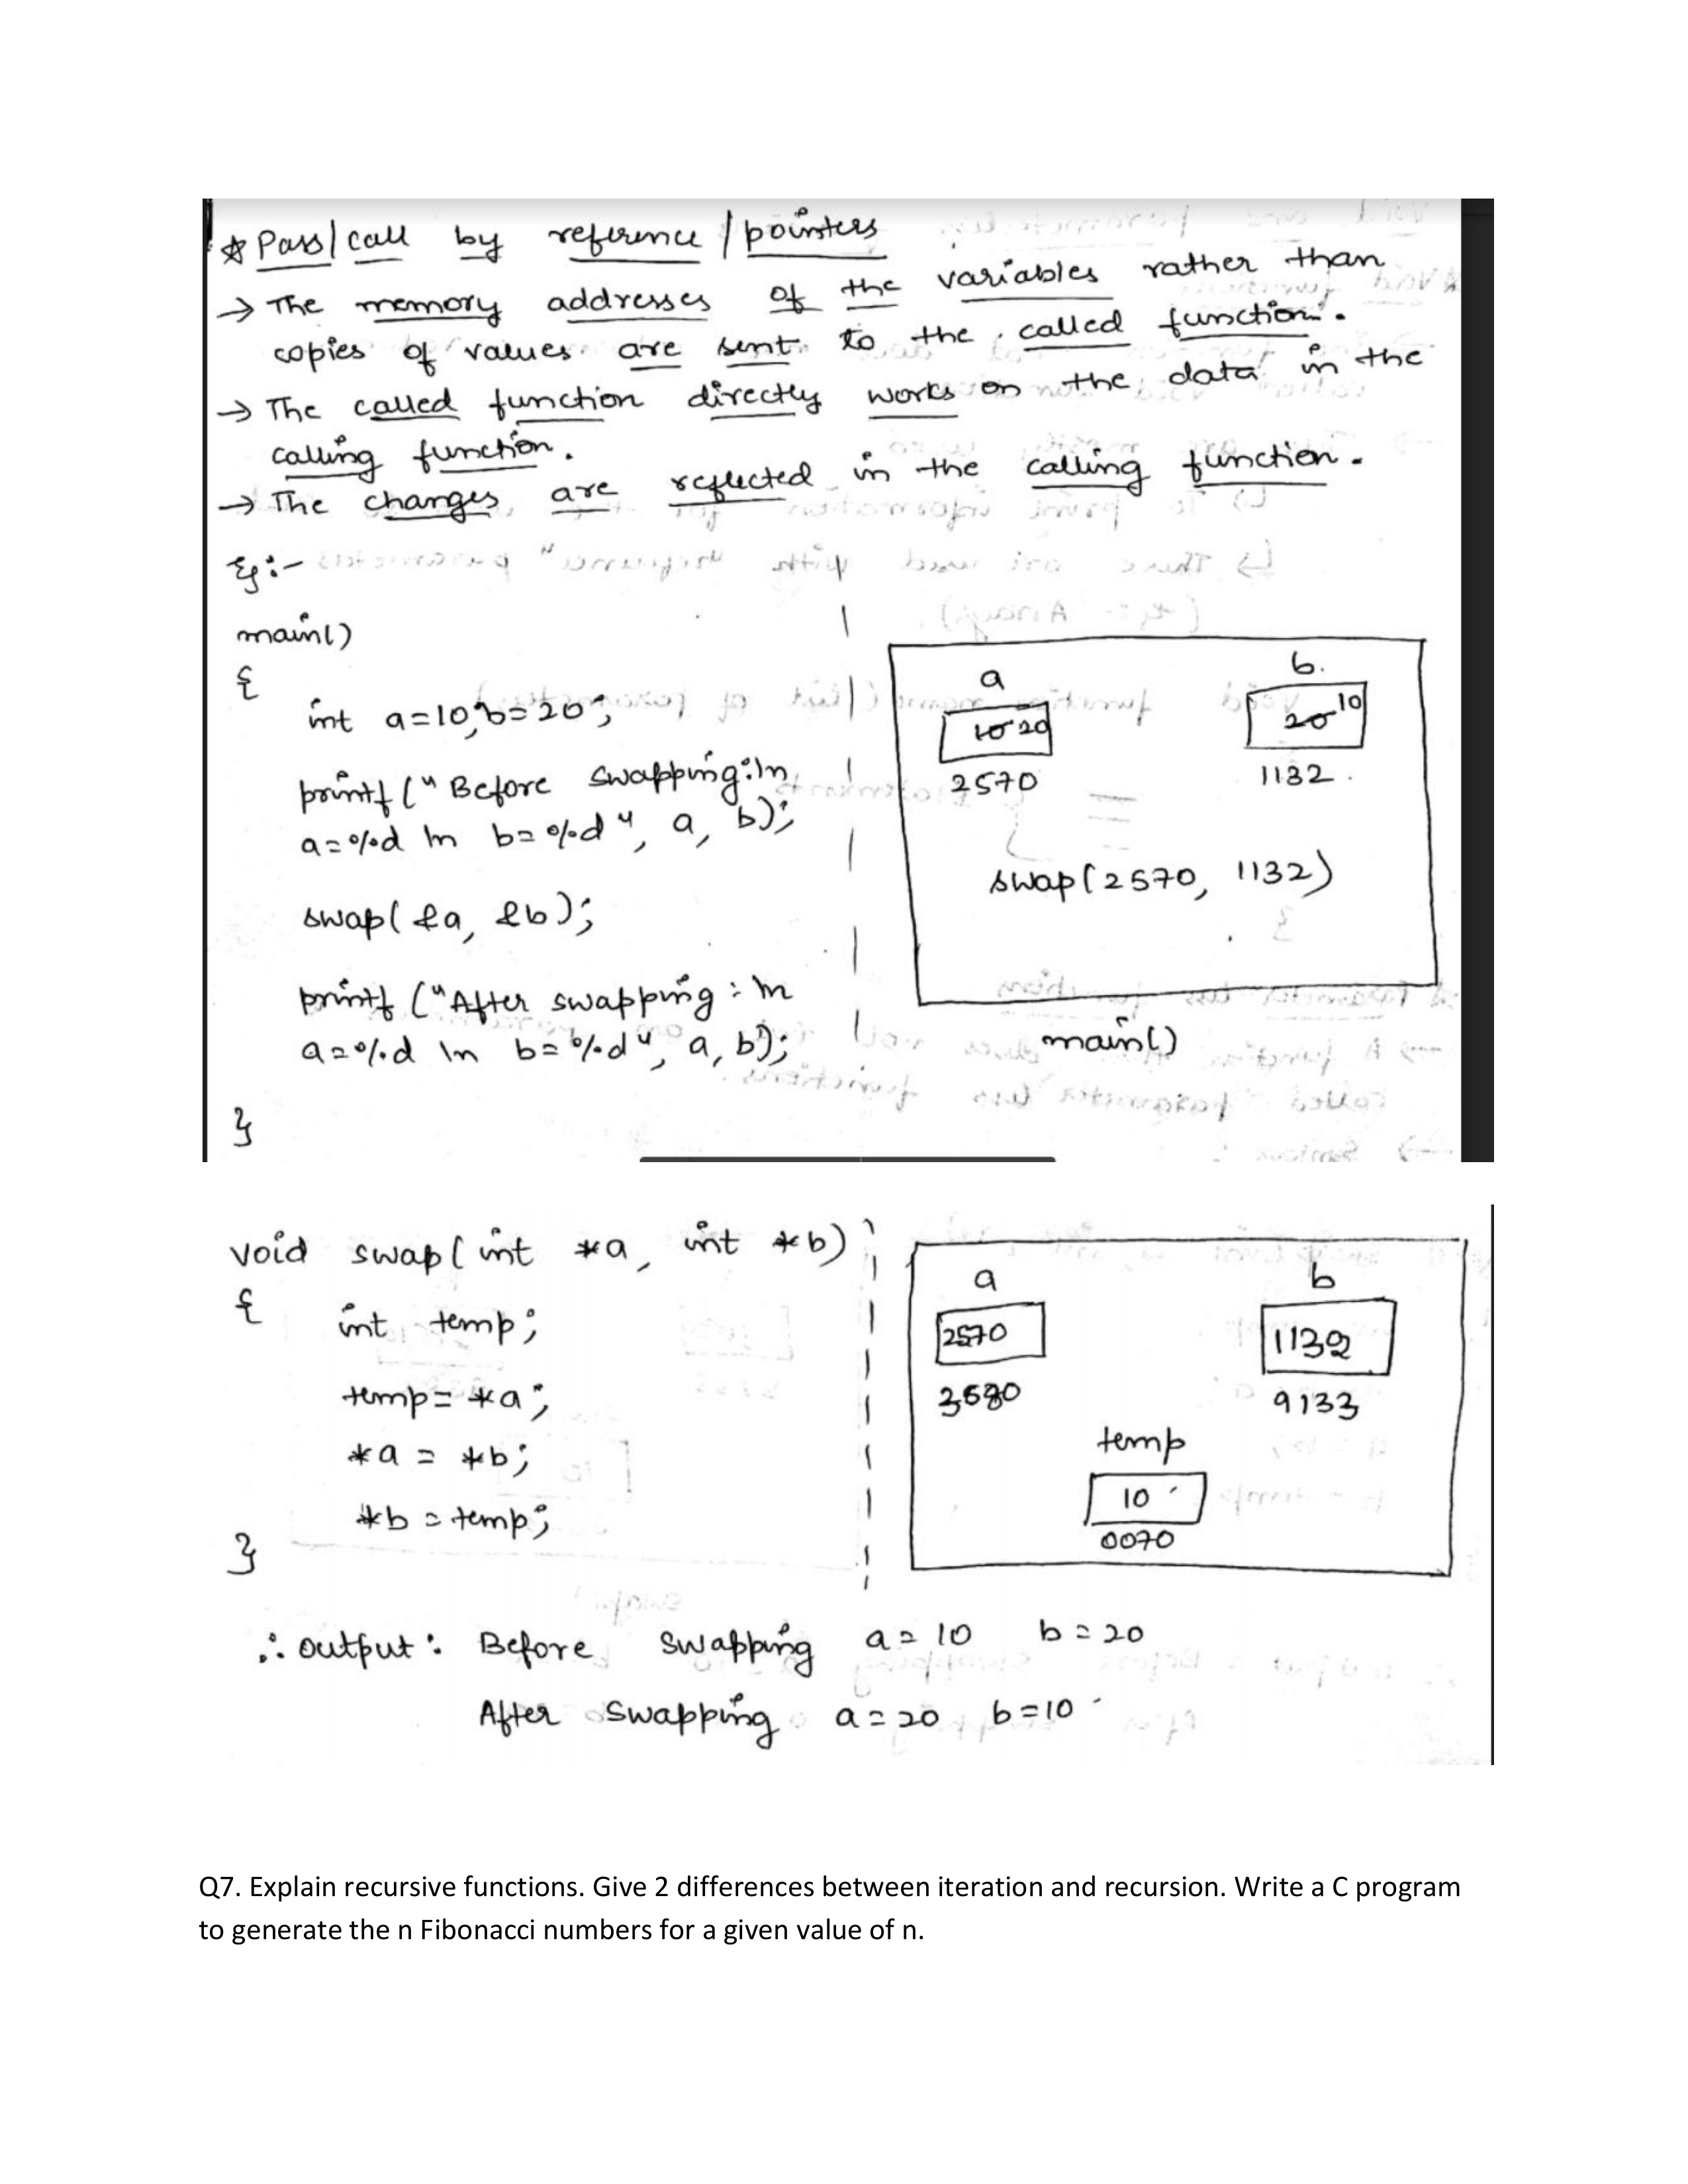 * Pass/call by reference/pointers
→ The memory addresses of the variables rather than
copies of values are sent to the called function.
→ The called function directly works on the data in the
calling function.
→ The changes are reflected in the calling function.
Eg:-
main()
{
int a=10, b=20;
printf("Before swapping:\n
a=%d \n b=%d", a, b);
swap(&a, &b);
printf("After swapping:\n
a=%d \n b=%d", a, b);
}
a
b
10 20
20 10
2570
1132
swap(2570, 1132)
main()
void swap(int *a, int *b)
{
int temp;
temp=*a;
*a = *b;
*b = temp;
}
a
b
2570
1132
9133
temp
10
0070
∴ output: Before swapping a=10 b=20
After swapping a=20 b=10
Q7. Explain recursive functions. Give 2 differences between iteration and recursion. Write a C program
to generate the n Fibonacci numbers for a given value of n.